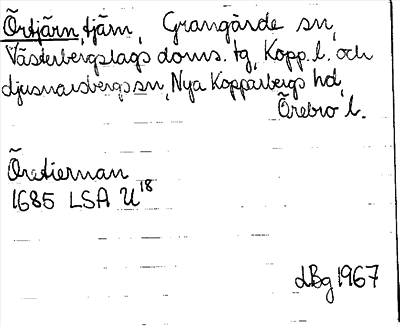 Örtjärn, tjärn, Grangärde sn,
Västerbergslags doms. tg, Kopp. l. och
Ljusnarsbergs sn, Nya Kopparbergs hd,
Örebro l.
Öretiernan
1685 LSA U18
LBg 1967